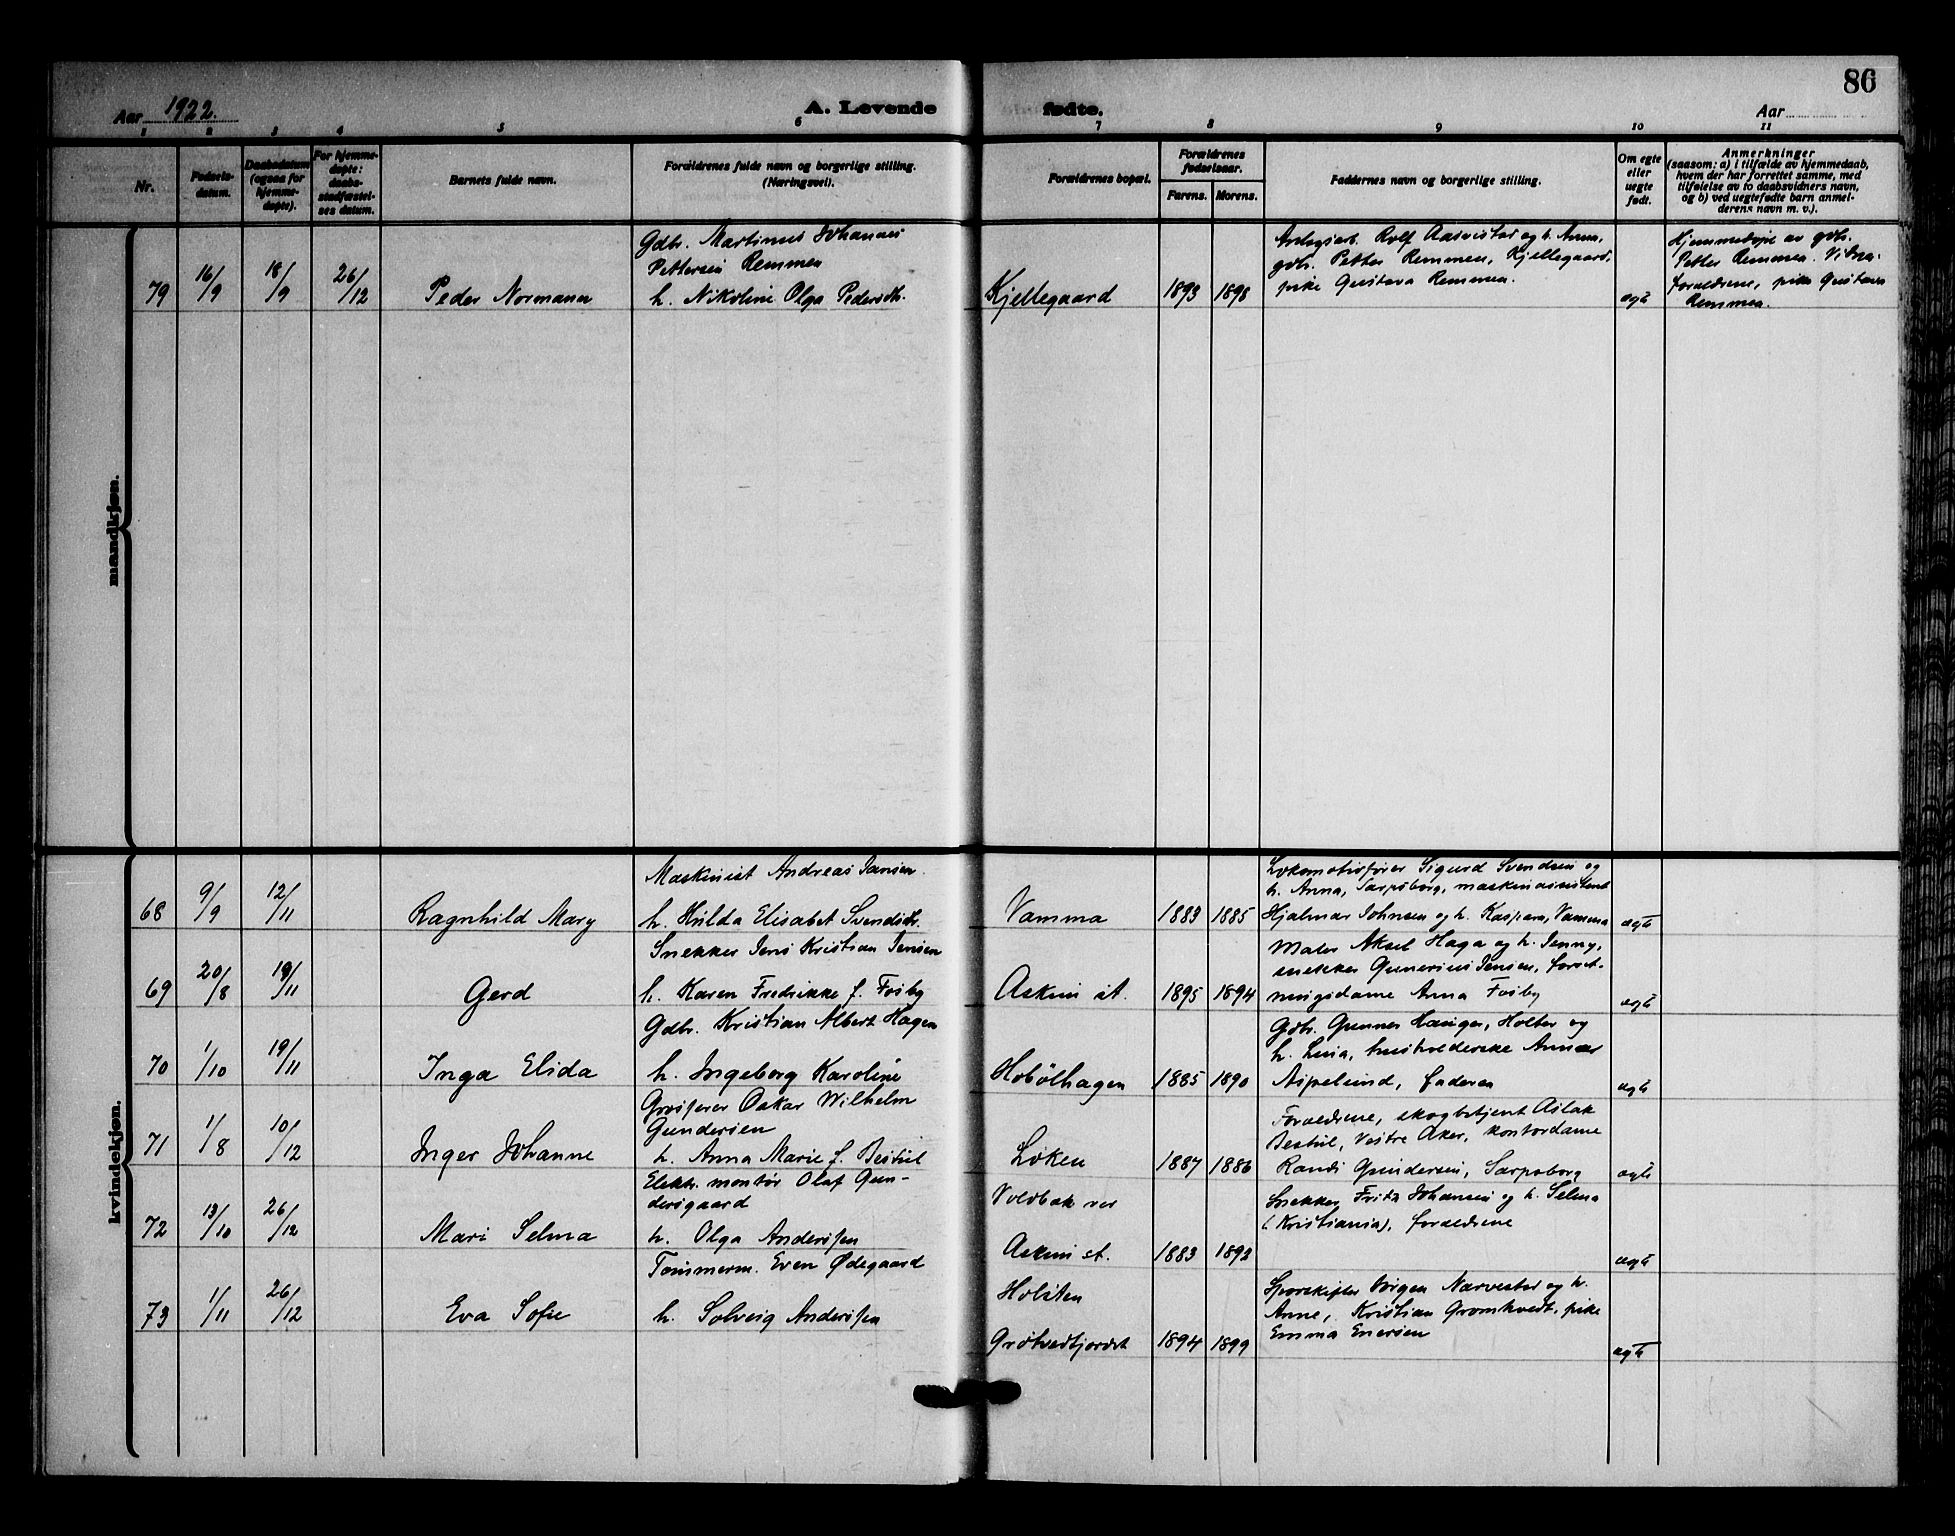 86
Aar 1922.
A. Levende
fødte.
Aar
1 2 3 4 5 6 7 8 9 10 11
Nr.
Fødsels-
datum.
Daabsdatum
(ogsaa for
hjemme-
døpte).
For hjemme-
døpte:
daabs-
stadfæstel-
ses datum.
Barnets fulde navn.
Forældrenes fulde navn og borgerlige stilling.
(Næringsvei).
Forældrenes bopæl.
Forældrenes
fødselsaar.
Farens. Morens.
Faddernes navn og borgerlige stilling.
Om egte
eller
uegte
født.
Anmerkninger
(saasom: a) i tilfælde av hjemmedaab,
hvem der har forrettet samme, med
tilføielse av to daabsvidners navn,
og b) ved uegtefødte barn anmel-
derens navn m. v.).
mandkjøn.
79 16/9 18/9 26/12 Peder Normann
Gdbr. Martinus Johannes
Pettersen Remmen
h. Nikoline Olga Pedersdtr.
Kjellegaard 1893 1898
Anlegsarb. Rolf Aasvistad og h. Anna,
gdbr. Petter Remmen, Kjellegaard,
pike Gustava Remmen.
egte
Hjemmedøpt av gdb.
Petter Remmen. Vidner:
forældrene, pike Gustava
Remmen.
kvindekjøn.
68 9/9 12/11 Ragnhild Mary
Maskinist Andreas Jansen.
h. Hilda Elisabet Svendsdtr.
Vamma 1883 1885
Lokomotivfører Sigurd Svendsen og
h. Anna, Sarpsborg, maskinassistent
Hjalmar Johnsen og h. Kaspara, Vamma
egte
69 20/8 19/11 Gerd
Snekker Jens Kristian Jensen
h. Karen Fredrikke f. Fosby
Askim st. 1895 1894
Maler Aksel Haga og h. Jenny,
snekker Gunerius Jensen, forret-
ningsdame Anna Fosby
egte
70 1/10 19/11 Inga Elida
Gdbr. Kristian Albert Hagen
h. Ingeborg Karoline
Hobølhagen 1885 1890
Gdb. Gunnar Hauger, Holter og
h. Lina, husholderske Anna
Aspelund, faderen
egte
71 1/8 10/12 Inger Johanne
Grosserer Oskar Wilhelm
Gundersen
h. Anna Marie f. Bestul
Løken 1887 1886
Forældrene, skogbetjent Aslak
Bestul, Vestre Aker, kontordame
Randi Gundersen, Sarpsborg
egte
72 13/10 26/12 Mari Selma
Elektr. montør Olaf Gun-
dersgaard
h. Olga Anderssen
Voldbak ver
Askim st. 1883 1892
Snekker Fritz Johansen og h. Selma
(Kristiania), forældrene
egte
73 1/11 26/12 Eva Sofie
Tømmerm. Even Ødegaard
h. Solveig Anderssen
Holsten
Grøtvedtjordet 1894 1899
Sporskifter Jørgen Narvestad og h.
Anne, Kristian Gromkvedt, pike
Emma Enersen
egte